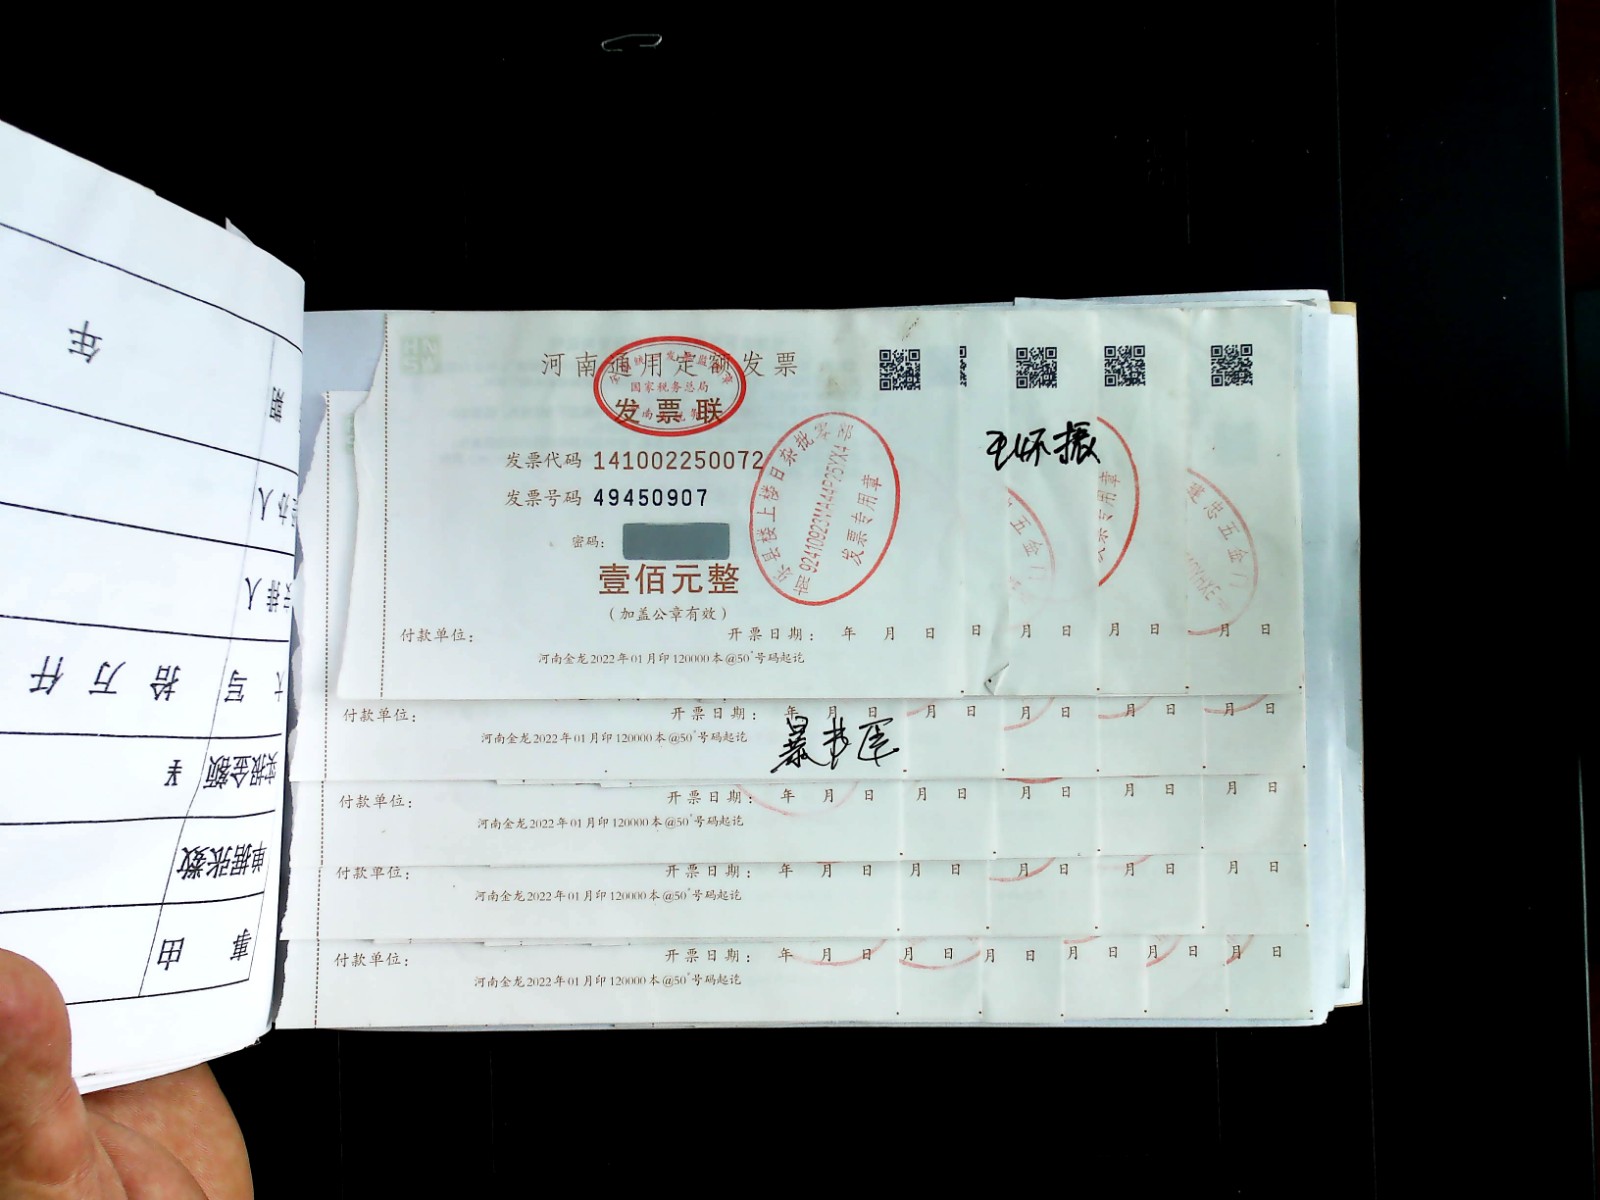 河南通用定额发票
国家税务总局
发票联
发票代码 141002250072
发票号码 49450907
密码:
壹佰元整
(加盖公章有效)
付款单位: 开票日期: 年 月 日 日 月 日 月 日 月 日
河南金龙2022年01月印120000本@50°号码起讫
乐县楼上楼日杂批零部
92410923MA44P25YX4
发票专用章
王怀振
五金
发票专用章
建忠五金门
付款单位: 开票日期: 年 月 日 月 日 月 日 月 日 月 日
河南金龙2022年01月印120000本@50°号码起讫
付款单位: 开票日期: 年 月 日 月 日 月 日 月 日 月 日
河南金龙2022年01月印120000本@50°号码起讫
付款单位: 开票日期: 年 月 日 月 日 月 日 月 日 月 日
河南金龙2022年01月印120000本@50°号码起讫
付款单位: 开票日期: 年 月 日 月 日 月 日 月 日 月 日 月 日
河南金龙2022年01月印120000本@50°号码起讫
事由
单据张数
实报金额 ¥
大写 拾万仟
排人
办人
年